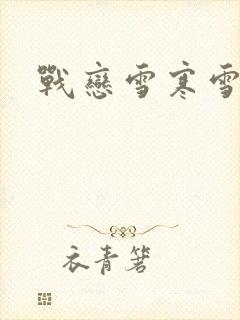 戰戀雪寒雪
衣青箬